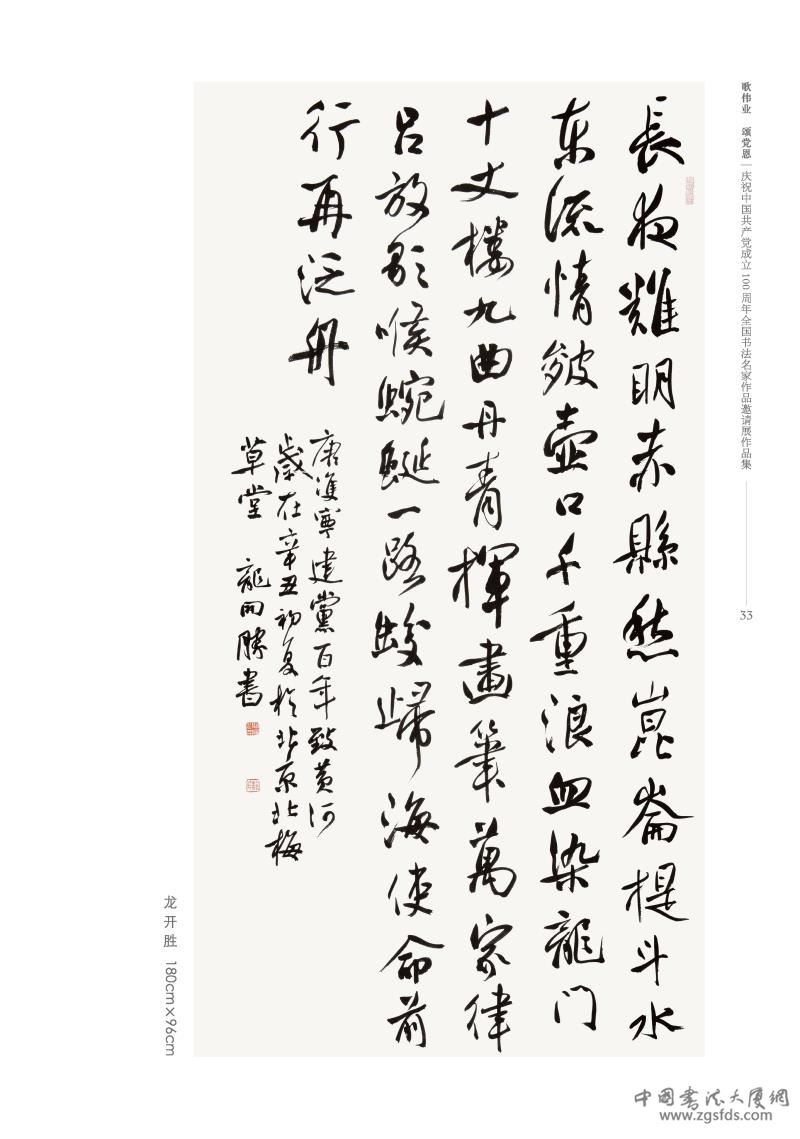 歌伟业 颂党恩 | 庆祝中国共产党成立100周年全国书法名家作品邀请展作品集
33
長夜難明赤縣愁崑崙提斗水
东流情皴壺口千重浪血染龍门
十丈楼九曲丹青揮畫筆萬家律
吕放歌喉蜿蜒一路歸海使命前
行再泛舟
唐雙寧建黨百年致黄河
歲在辛丑初夏於北京北梅
草堂 龍開勝書
龙开胜 180cm×96cm
中国書法大廈網
www.zgsfds.com